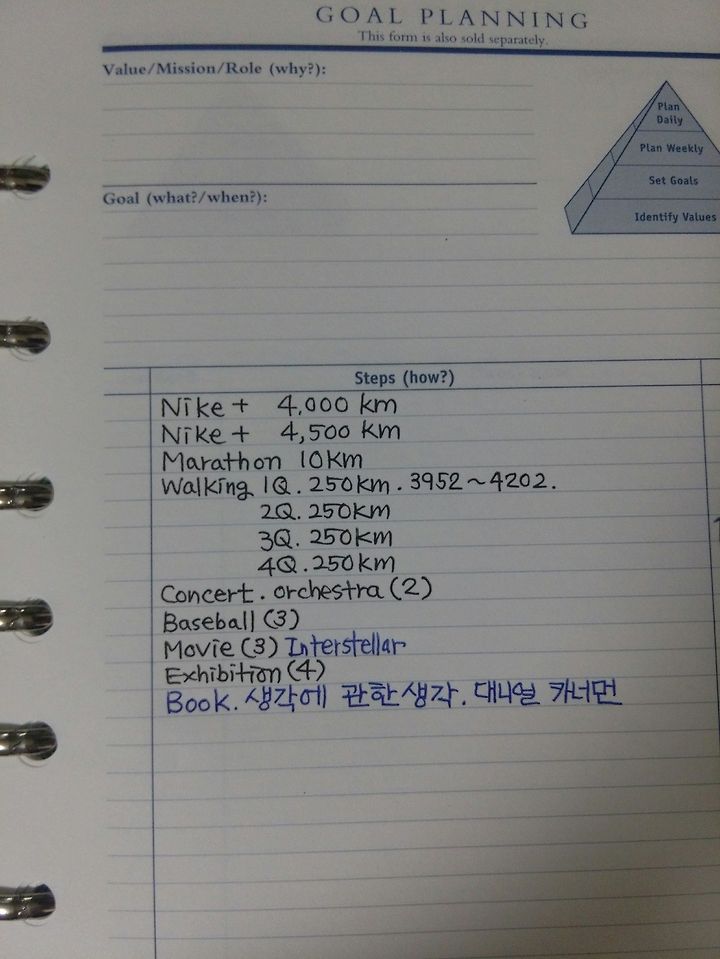 GOAL PLANNING
This form is also sold separately.
Value/Mission/Role (why?):
Plan
Daily
Plan Weekly
Set Goals
Identify Values
Goal (what?/when?):
Steps (how?)
Nike + 4,000 km
Nike + 4,500 km
Marathon 10km
Walking 1Q. 250km. 3952~4202.
2Q. 250km
3Q. 250km
4Q. 250km
Concert. orchestra (2)
Baseball (3)
Movie (3) Interstellar
Exhibition (4)
Book. 생각에 관한 생각. 대니얼 카너먼